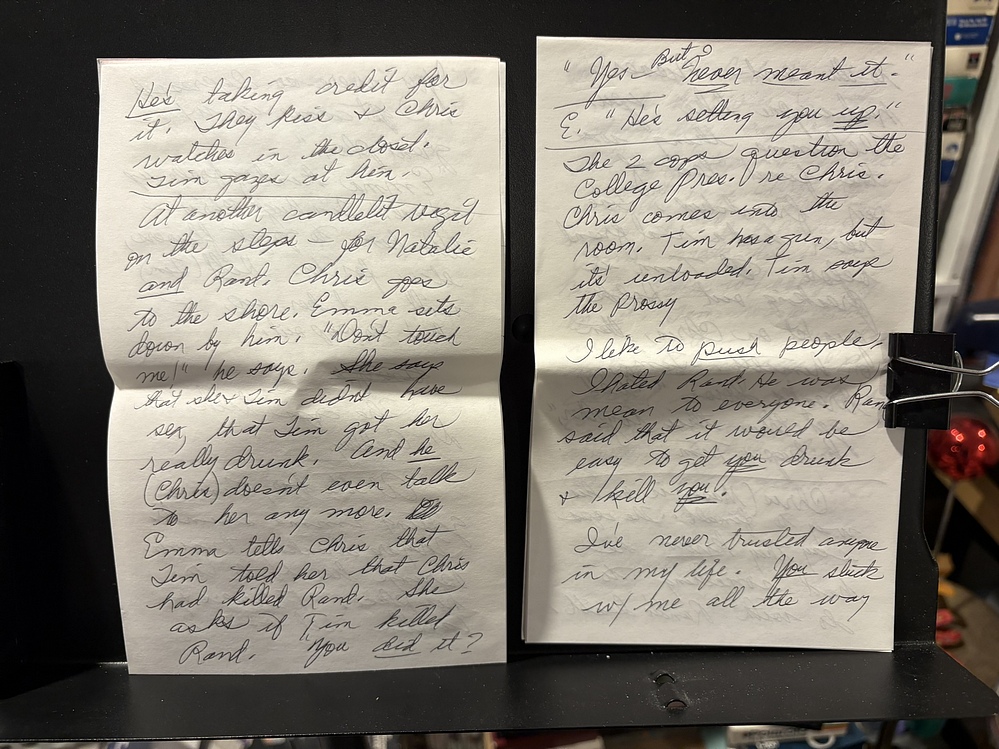 He's taking credit for
it. They kiss & Chris
watches in the closet.
Tim gazes at him.
At another candlelit vigil
on the steps – for Natalie
and Rand. Chris goes
to the shore. Emma sits
down by him. "Don't touch
me!" he says. She says
that she & Tim didn't have
sex, that Tim got her
really drunk. And he
(Chris) doesn't even talk
to her any more.
Emma tells Chris that
Tim told her that Chris
had killed Rand. She
asks if Tim killed
Rand. You did it?
"Yes But I never meant it."
E. "He's setting you up."
The 2 cops question the
College Pres. re Chris.
Chris comes into the
room. Tim has a gun, but
it's unloaded. Tim says
the Prossy
I like to push people.
I hated Rand. He was
mean to everyone. Rand
said that it would be
easy to get you drunk
& kill you.
I've never trusted anyone
in my life. You stuck
w/ me all the way